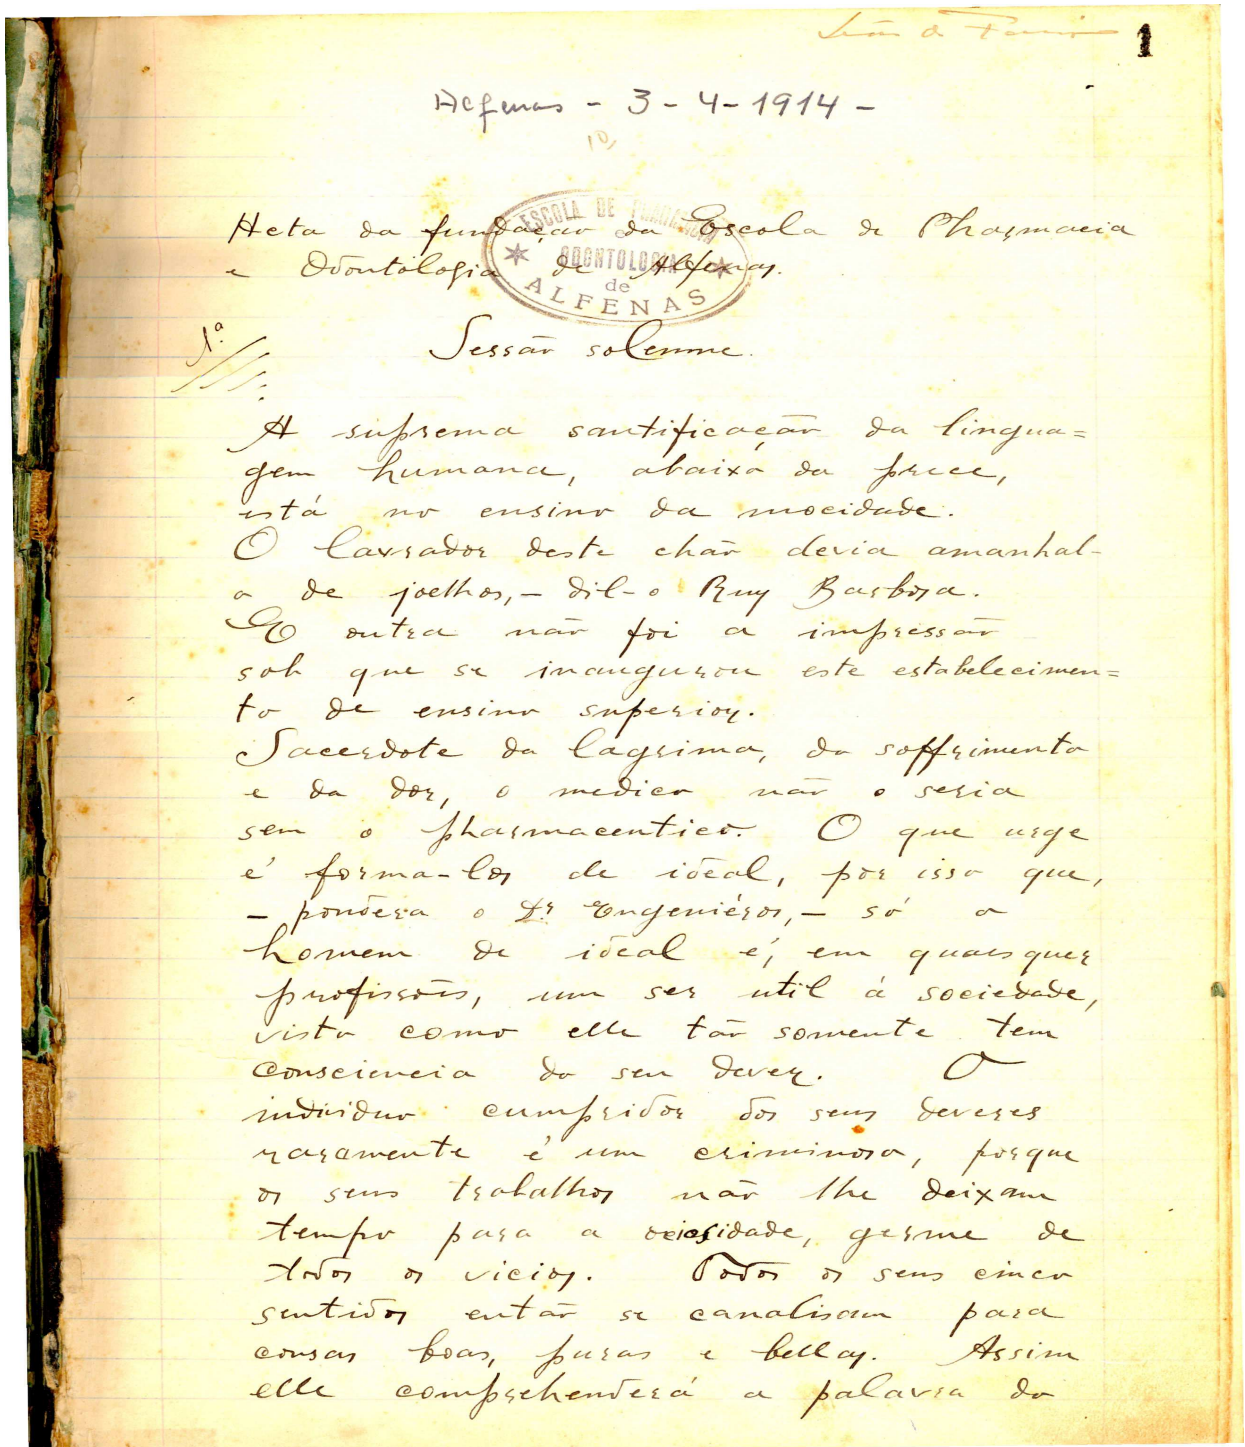 1
Alfenas - 3-4-1914 -
ESCOLA DE
ODONTOLOGIA
de
ALFENAS
Acta da fundação da Escola de Pharmacia
e Odontologia de Alfenas.
1ª
Sessão solemne.
A suprema santificação da lingua=
gem humana, abaixo da prece,
está no ensino da mocidade.
O lavrador deste chão devia amanhal-
o de joelhos, - dil-o Ruy Barbosa.
E outra não foi a impressão
sob que se inaugurou este estabelecimen=
to de ensino superior.
Sacerdote da lagrima, do soffrimento
e da dor, o medico não o seria
sem o pharmaceutico. O que urge
é forma-los de ideal, por isso que,
- pondera o Dr Engeniéros, - só o
homem de ideal é, em quaesquer
profissões, um ser util á sociedade,
visto como elle tão somente tem
consciencia do seu dever. O
individuo cumpridor dos seus deveres
raramente é um criminoso, porque
os seus trabalhos não lhe deixam
tempo para a ociosidade, germe de
todos os vicios. Todos os seus cinco
sentidos então se canalisam para
cousas boas, puras e bellas. Assim
elle comprehenderá a palavra do